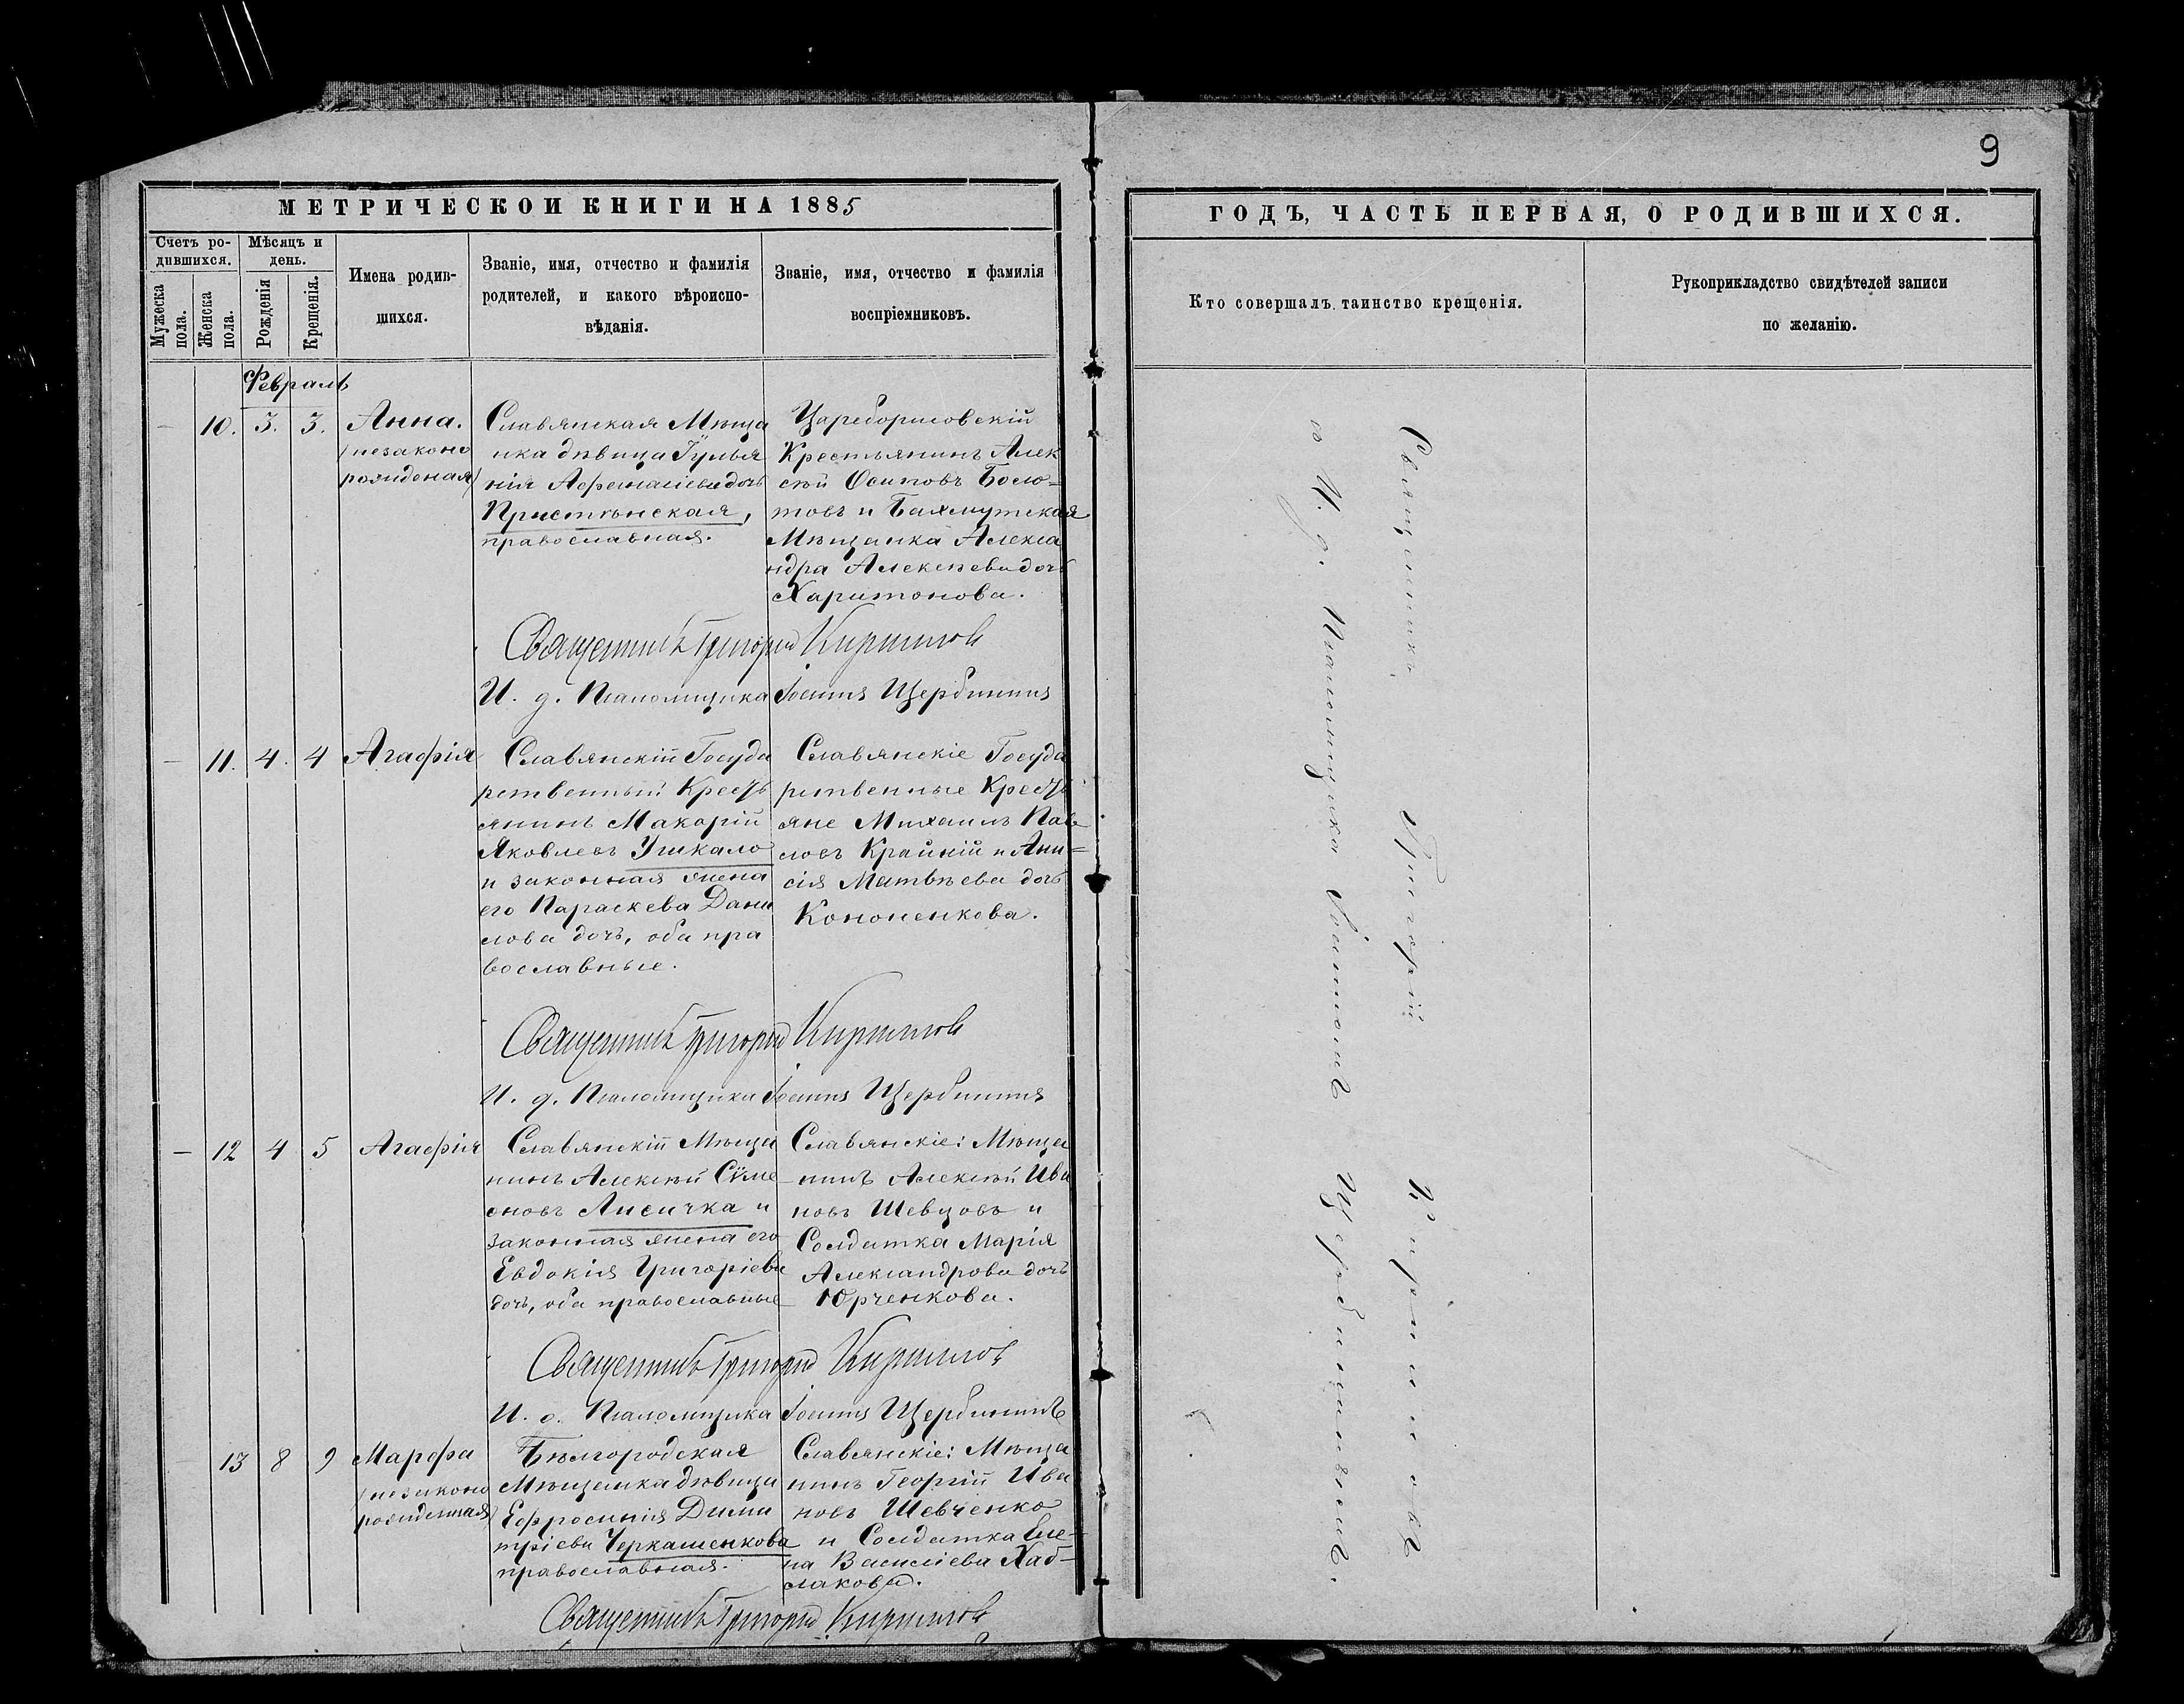 9
МЕТРИЧЕСКОЙ КНИГИ НА 1885
ГОДЪ, ЧАСТЬ ПЕРВАЯ, О РОДИВШИХСЯ.
Счетъ ро-
дившихся.
Мужеска
пола.
Женска
пола.
Мѣсяцъ и
день.
Рожденія
Крещенія.
Имена родив-
шихся.
Званіе, имя, отчество и фамилія
родителей, и какого вѣроиспо-
вѣданія.
Званіе, имя, отчество и фамилія
воспріемниковъ.
Кто совершалъ таинство крещенія.
Рукоприкладство свидѣтелей записи
по желанію.
Февраль
— 10. 3. 3.
Анна.
/незаконо
рожденая/
Славянская Мѣща
нка дѣвица Іулья
нія Аѳанасіева дочь
Пристѣнская,
православная.
Цареборисовскій
Крестьянинъ Алек
сѣй Осиповъ
товъ и Бахмутская
Мѣщанка Алекса
ндра Алексѣева дочь
Харитонова.
Священникъ Григорій Кирилловъ
И. д. Псаломщика Іоаннъ Щербининъ
— 11. 4. 4
Агафія
Славянскій Госуда
рственный Кресть
янинъ Макарій
Яковлевъ Учкало
и законная жена
его Параскева Дани
лова дочь, оба пра
вославные.
Славянскіе Госуда
рственные Кресть
яне Михаилъ Пав
ловъ Крайній и Ани=
сія Матвѣева дочь
Кононенкова.
Священникъ Григорій Кирилловъ
И. д. Псаломщика Іоаннъ Щербининъ
— 12 4 5
Агафія
Славянскій Мѣща
нинъ Алексѣй Сѵме
оновъ Лисичка и
законная жена его
Евдокія Григоріева
дочь, оба православные
Славянскіе: Мѣща
нинъ Алексѣй Ива
новъ Шевцовъ и
Солдатка Марія
Александрова дочь
Юрченкова.
Священникъ Григорій Кирилловъ
И. д. Псаломщика Іоаннъ Щербининъ
13 8 9
Марфа
/незаконо
рожденная/
Бѣлгородская
Мѣщанка дѣвица
Ефросинія Дими
тріева Черкашенкова
православная.
Славянскіе: Мѣща
нинъ Георгій Ива
новъ Шевченко
и Солдатка Еле-
на Василіева Хаб-
лакова.
Священникъ Григорій Кирилловъ
Священникъ Григорій Кирилловъ
И. д. Псаломщика Іоаннъ Щербининъ.